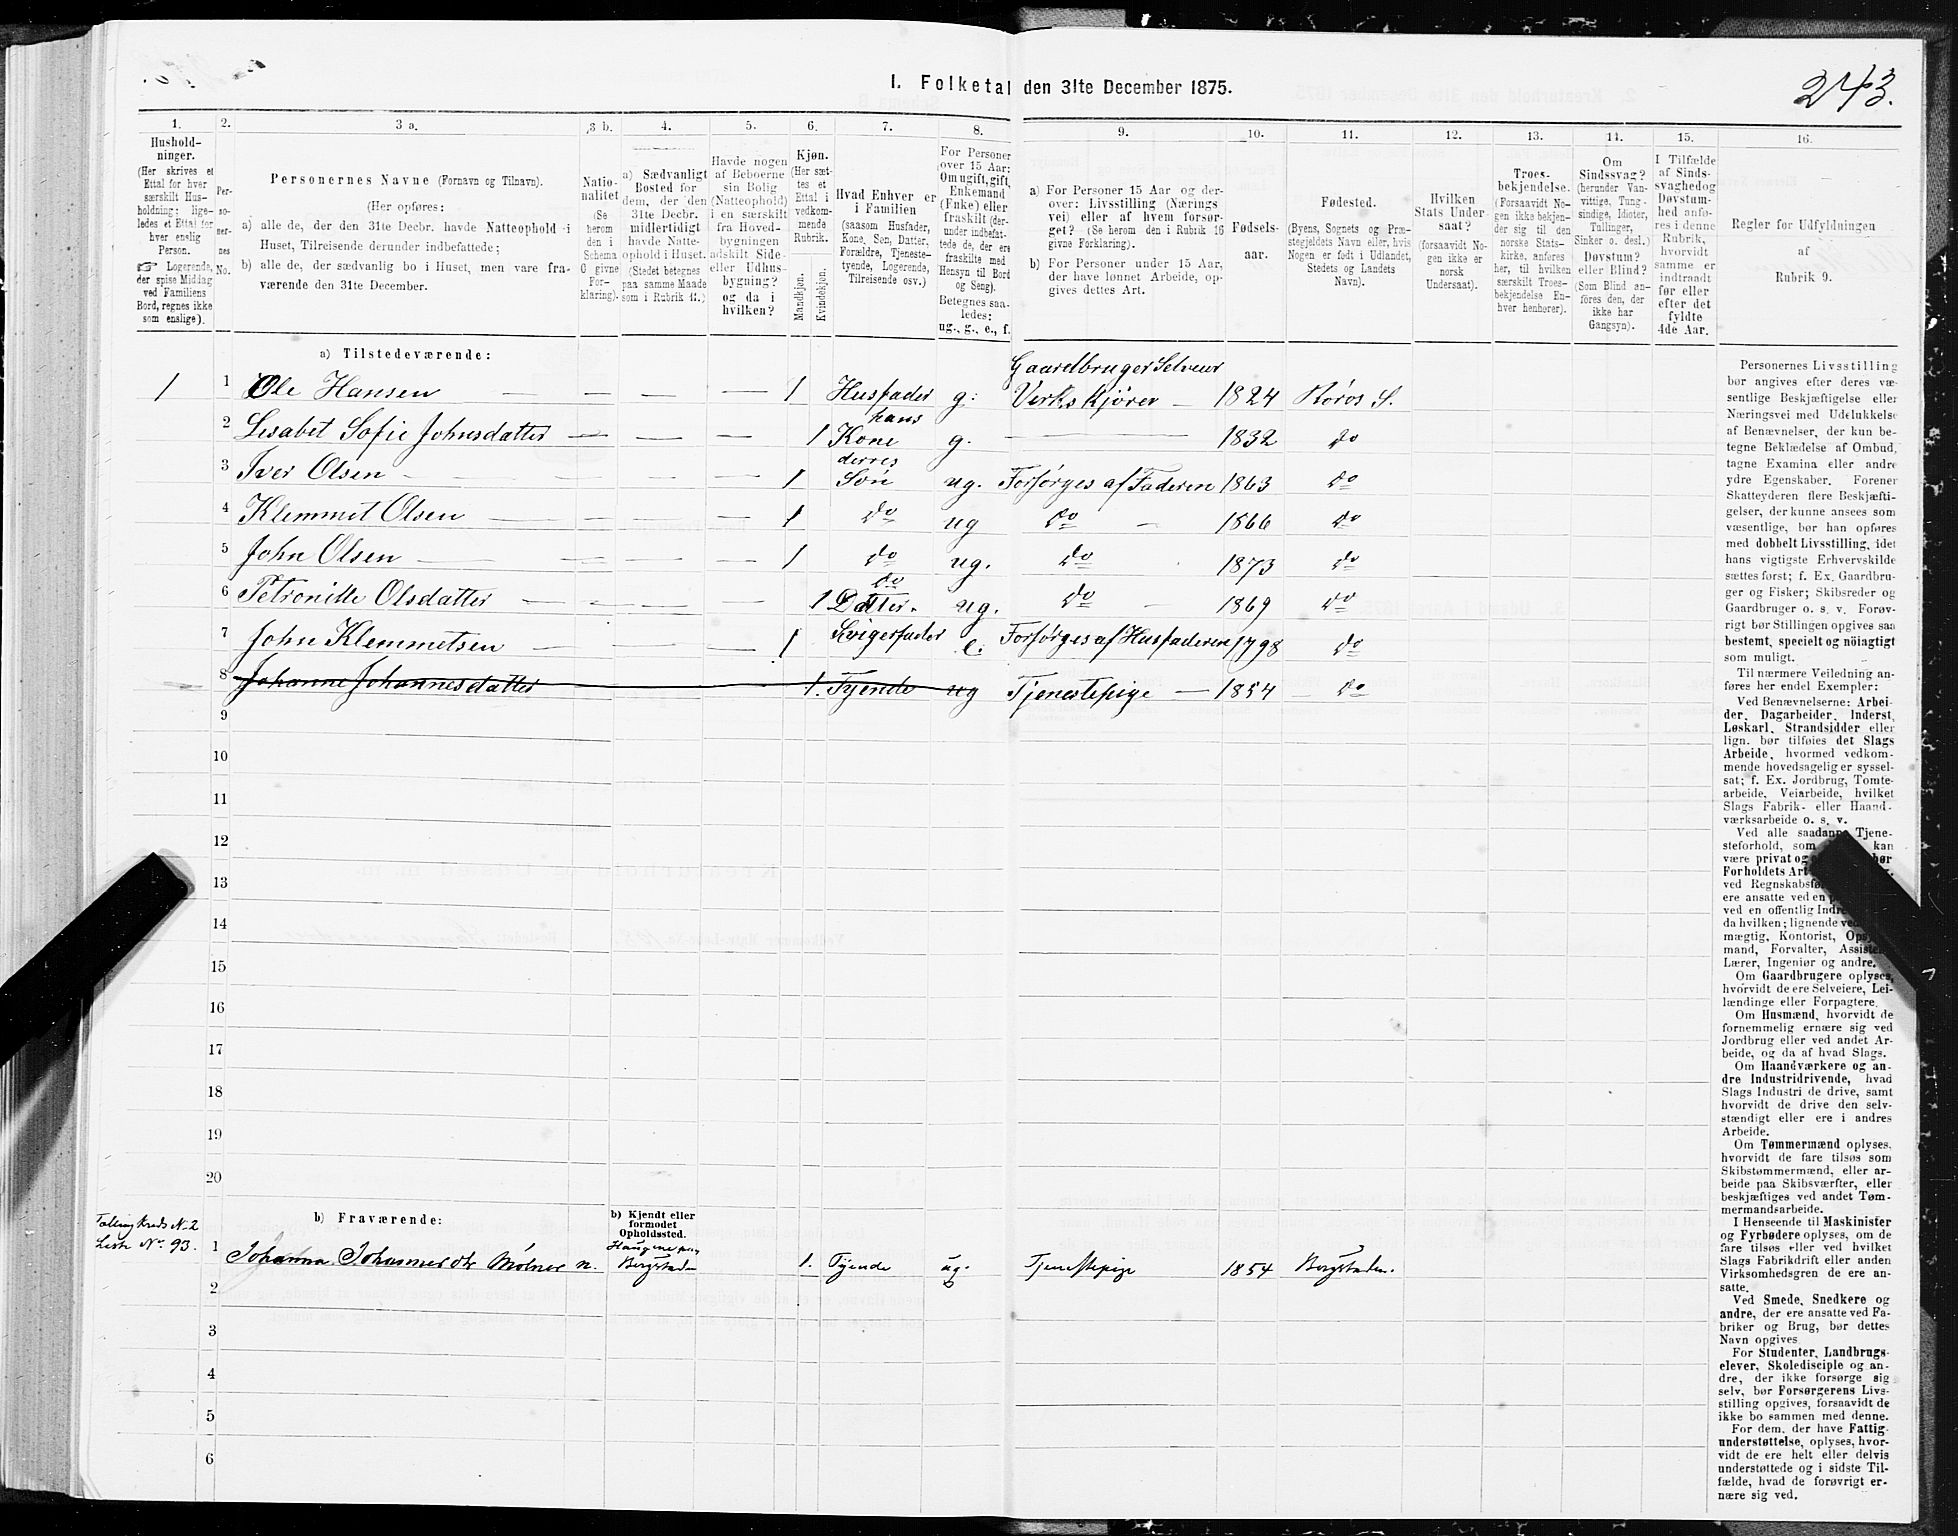 I. Folketal den 31te December 1875.
243.
1. 2. 3 a. 3 b. 4. 5. 6. 7. 8. 9. 10. 11. 12. 13. 14. 15. 16.
Hushold-
ninger.
(Her skrives et
Ettal for hver
særskilt Hus-
holdning; lige-
ledes et Ettal for
hver enslig
Person.
☞ Logerende,
der spise Middag
ved Familiens
Bord, regnes ikke
som enslige).
Per-
so-
ner-
nes
No.
Personernes Navne (Fornavn og Tilnavn).
(Her opføres:
a) alle de, der den 31te Decbr. havde Natteophold i
Huset, Tilreisende derunder indbefattede;
b) alle de, der sædvanlig bo i Huset, men vare fra-
værende den 31te December.
Natio-
nalitet
(Se
herom
den i
Schema
G givne
For-
klaring).
a) Sædvanligt
Bosted for
dem, der den
31te Decbr.
midlertidigt
havde Natte-
ophold i Huset.
(Stedet betegnes
paa samme Maade
som i Rubrik 11.)
Havde nogen
af Beboerne
sin Bolig
(Natteophold)
i en særskilt
fra Hoved-
bygningen
adskilt Side-
eller Udhus-
bygning?
og da i
hvilken?
Kjøn.
(Her sæt-
tes et
Ettal i
vedkom-
mende
Rubrik.
Mandkjøn.
Kvindekjøn.
Hvad Enhver er
i Familien
(saasom Husfader,
Kone, Søn, Datter,
Forældre, Tjeneste-
tyende, Logerende,
Tilreisende osv.)
For Personer
over 15 Aar:
Om ugift, gift,
Enkemand
(Enke) eller
fraskilt (der-
under indbefat-
tede de, der ere
fraskilte med
Hensyn til Bord
og Seng).
Betegnes saa-
ledes:
ug., g., e., f.
a) For Personer 15 Aar og der-
over: Livsstilling (Nærings-
vei) eller af hvem forsør-
get? (Se herom den i Rubrik 16
givne Forklaring).
b) For Personer under 15 Aar,
der have lønnet Arbeide, op-
gives dettes Art.
Fødsels-
aar.
Fødested.
(Byens, Sognets og Præ-
stegjeldets Navn eller, hvis
Nogen er født i Udlandet,
Stedets og Landets
Navn).
Hvilken
Stats Under-
saat?
(forsaavidt No-
gen ikke er
norsk
Undersaat).
Troes-
bekjendelse.
(Forsaavidt No-
gen ikke bekjen-
der sig til den
norske Stats-
kirke, anføres
her, til hvilken
særskilt Troes-
bekjendelse En-
hver henhører).
Om
Sindssvag?
(herunder Van-
vittige, Tung-
sindige, Idioter,
Tullinger,
Sinker o. desl.)
Døvstum?
eller Blind?
(Som Blind an-
føres den, der
ikke har
Gangsyn).
I Tilfælde
af Sinds-
svaghedog
Døvstum-
hed anfø-
res i denne
Rubrik,
hvorvidt
samme er
indtraadt
før eller
efter det
fyldte
4de Aar.
Regler for Udfyldningen
af
Rubrik 9.
a) Tilstedeværende:
Gaardbruger Selveier
1 1 Ole Hansen — — — 1 Husfader g: Verkskjører — 1824 Røros S.
2 Lisabet Sofie Johnsdatter — — — 1 hans Kone g. — 1832 do
3 Iver Olsen — — — 1 derres Søn ug. Forsørges af Faderen 1863 do
4 Klemmet Olsen — — — 1 do ug do — 1866 do
5 John Olsen — — — 1 do ug. do 1873 do
6 Petronille Olsdatter — — — 1 do Datter. ug. do — 1869 do
7 John Klemmetsen — — — 1 Svigerfader e. Forsørges af Husfaderen 1798 do
8 Johanne Johannesdatter 1. Tyende ug Tjenestepige — 1854 — do
9
10
11
12
13
14
15
16
17
18
19
20
b) Fraværende:
b) Kjendt eller
formodet
Opholdssted.
Tælling Kreds No 2
Liste No 93.
1 Johanna Johannesdtr Mølner n. Bergstad 1. Tyende ug. Tjenestepige 1854 Bergstaden.
2
3
4
5
6
Personernes Livsstilling
bør angives efter deres væ-
sentlige Beskjæftigelse eller
Næringsvei med Udelukkelse
af Benævnelser, der kun be-
tegne Beklædelse af Ombud,
tagne Examina eller andre
ydre Egenskaber. Forener
Skatteyderen flere Beskjæfti-
gelser, der kunne ansees som
væsentlige, bør han opføres
med dobbelt Livsstilling, idet
hans vigtigste Erhvervskilde
sættes først; f. Ex. Gaardbru-
ger og Fisker; Skibsreder og
Gaardbruger o. s. v. Forøv-
rigt bør Stillingen opgives saa
bestemt, specielt og nøiagtigt
som muligt.
Til nærmere Veiledning an-
føres her endel Exempler:
Ved Benævnelserne: Arbei-
der, Dagarbeider, Inderst,
Løskarl, Strandsidder eller
lign. bør tilføies det Slags
Arbeide, hvormed vedkom-
mende hovedsagelig er syssel-
sat; f. Ex. Jordbrug, Tomte-
arbeide, Veiarbeide, hvilket
Slags Fabrik- eller Haand-
værksarbeide o. s. v.
Ved alle saadanne Tjene-
steforhold, som kan
være privat og bør
Forholdets Art
ved Regnskabsfø
ere ansatte ved en
ved en offentlig Indre
da hvilken; lignende ved
mægtig, Kontorist, Opsy
mand, Forvalter, Assistent
Lærer, Ingeniør og andre.
Om Gaardbrugere oplyses,
hvorvidt de ere Selveiere, Lei-
lændinge eller Forpagtere.
Om Husmænd, hvorvidt de
fornemmelig ernære sig ved
Jordbrug eller ved andet Ar-
beide, og da af hvad Slags.
Om Haandværkere og an-
dre Industridrivende, hvad
Slags Industri de drive, samt
hvorvidt de drive den selv-
stændigt eller ere i andres
Arbeide.
Om Tømmermænd oplyses,
hvorvidt de fare tilsøs som
Skibstømmermænd, eller ar-
beide paa Skibsværfter, eller
beskjæftiges ved andet Tøm-
mermandsarbeide.
I Henseende til Maskinister
og Fyrbødere oplyses, om de
fare tilsøs eller ved hvilket
Slags Fabrikdrift eller anden
Virksomhedsgren de ere an-
satte.
Ved Smede, Snedkere og
andre, der ere ansatte ved Fa-
briker og Brug, bør dettes
Navn opgives.
For Studenter, Landbrugs-
elever, Skoledisciple og an-
dre, der ikke forsørge sig
selv, bør Forsørgerens Livs-
stilling opgives, forsaavidt de
ikke bo sammen med denne.
For dem, der have Fattig-
understøttelse, oplyses, hvor-
vidt de ere helt eller delvis
understøttede og i sidste Til-
fælde, hvad de forøvrigt er-
nære sig ved.